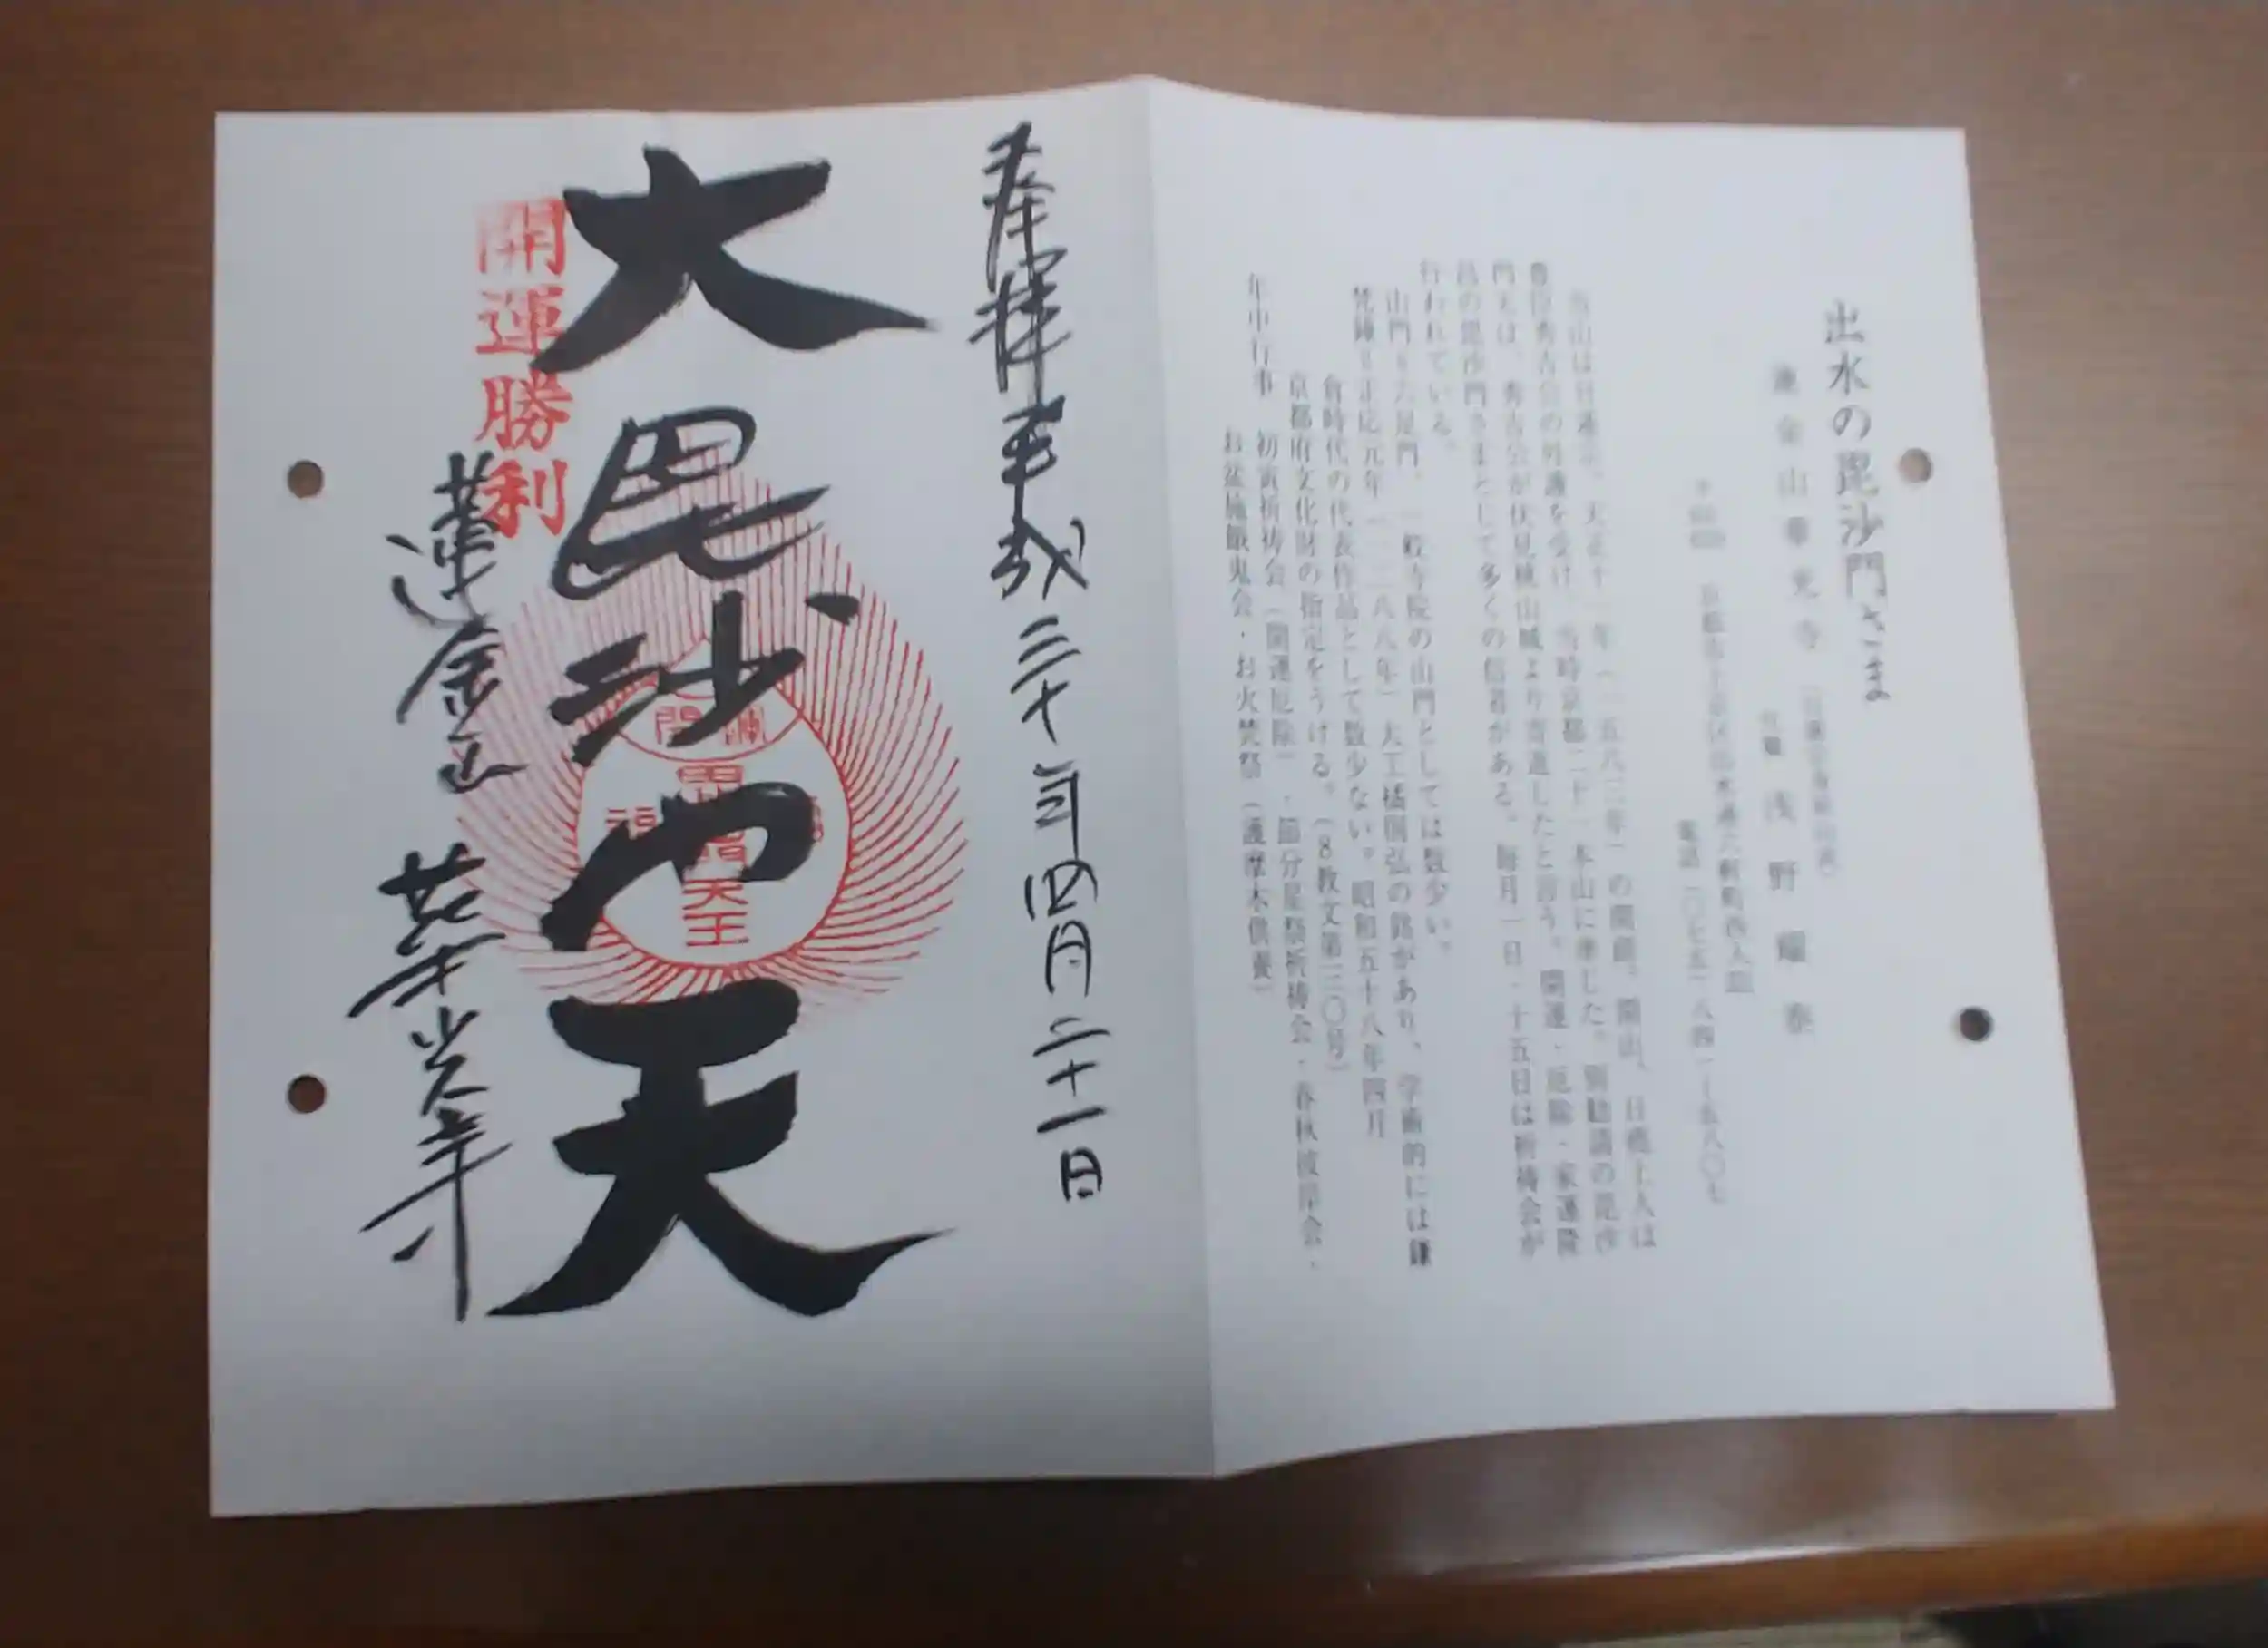 出水の毘沙門さま
蓮金山華光寺
住職 浅野曜泰
電話(〇七五)八四一―五八〇七
当山は日蓮宗、天正十一年(一五八三年)の開創。開山、日堯上人は
豊臣秀吉公の外護を受け、当時京都二十一本山に準じた。勧請の毘沙
門天は、秀吉公が伏見桃山城より寄進したと言う。開運・厄除・家運隆
昌の毘沙門さまとして多くの信者がある。毎月一日・十五日は祈祷会が
行われている。
山門は六足門、一般寺院の山門としては数少い。
梵鐘は正応元年(一二八八年)大工橘国弘の銘があり、学術的には鎌
倉時代の代表作品として数少ない。昭和五十八年四月
京都府文化財の指定をうける。(8教文第三〇号)
年中行事 初寅祈祷会(開運厄除)・節分星祭祈祷会・春秋彼岸会・
お盆施餓鬼会・お火焚祭(護摩木供養)
奉拝 平成三十年四月二十一日
大毘沙門天
開運勝利
毘沙門天王
開運
福
蓮金山 華光寺